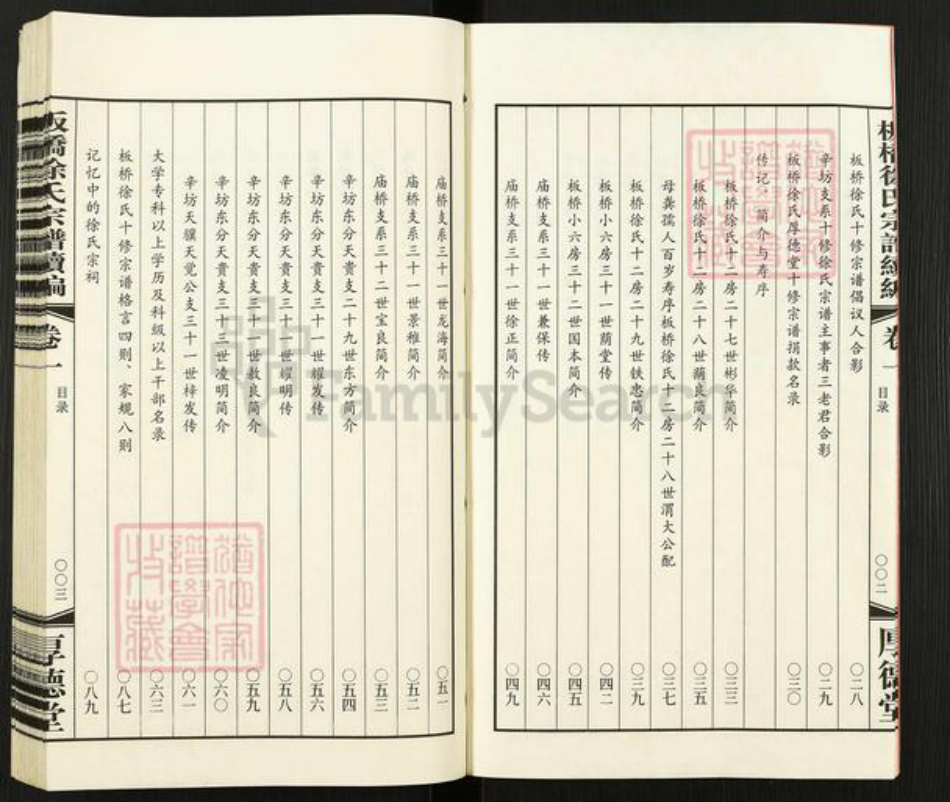 板橋徐氏宗譜續編
卷一
目录
〇〇二
厚德堂
板桥徐氏十修宗谱倡议人合影 〇二八
辛坊支系十修徐氏宗谱主事者三老君合影 〇二九
板桥徐氏厚德堂十修宗谱捐款名录 〇三〇
传记、简介与寿序
板桥徐氏十二房二十七世彬华简介 〇三三
板桥徐氏十二房二十八世荫良简介 〇三五
母龚孺人百岁寿序板桥徐氏十二房二十八世渭大公配 〇三七
板桥徐氏十二房二十九世铁忠简介 〇三九
板桥小六房三十一世荫堂传 〇四二
板桥小六房三十二世国本简介 〇四五
庙桥支系三十一世兼保传 〇四六
庙桥支系三十一世徐正简介 〇四九
庙桥支系三十一世龙海简介 〇五一
庙桥支系三十一世景稚简介 〇五二
庙桥支系三十二世宝良简介 〇五三
辛坊东分天贵支二十九世东方简介 〇五四
辛坊东分天贵支三十一世耀发传 〇五六
辛坊东分天贵支三十一世耀明传 〇五八
辛坊东分天贵支三十一世敖良简介 〇五九
辛坊东分天贵支三十三世凌明简介 〇六〇
辛坊天骥天觉公支三十一世梓发传 〇六一
大学专科以上学历及科级以上干部名录 〇六三
板桥徐氏十修宗谱格言四则、家规八则 〇八七
记忆中的徐氏宗祠 〇八九
板橋徐氏宗譜續編
卷一
目录
〇〇三
厚德堂
FamilySearch